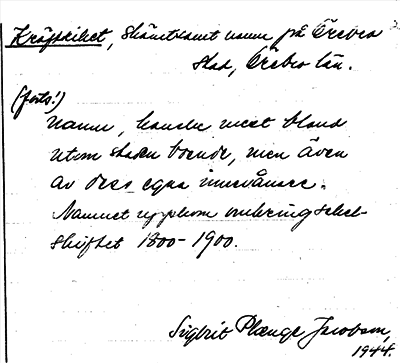 Kräftriket, skämtsamt namn på Örebro
stad, Örebro län.
(forts!)
namn, kanske mest bland
utom staden boende, men även
av dess egna innevånare.
Namnet uppkom omkring sekel-
skiftet 1800-1900.
Sigbrit Plænge Jacobson,
1944.